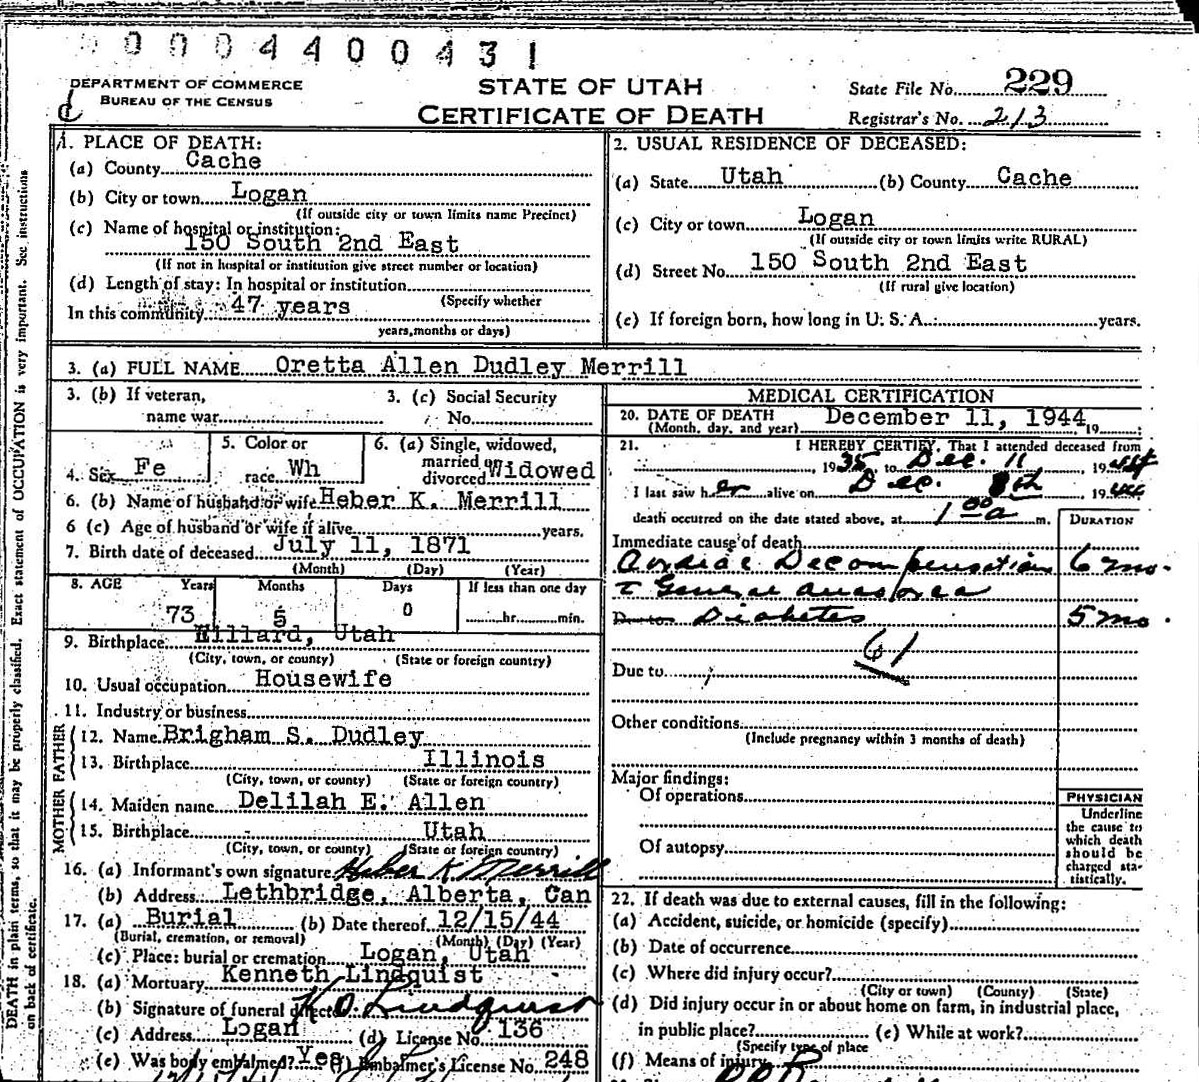 0004400431
DEPARTMENT OF COMMERCE
BUREAU OF THE CENSUS
d
STATE OF UTAH
CERTIFICATE OF DEATH
State File No. 229
Registrar's No. 213
1. PLACE OF DEATH:
(a) County Cache
(b) City or town Logan
(If outside city or town limits name Precinct)
(c) Name of hospital or institution:
150 South 2nd East
(If not in hospital or institution give street number or location)
(d) Length of stay: In hospital or institution
(Specify whether
In this community 47 years
years, months or days)
2. USUAL RESIDENCE OF DECEASED:
(a) State Utah (b) County Cache
(c) City or town Logan
(If outside city or town limits write RURAL)
(d) Street No. 150 South 2nd East
(If rural give location)
(e) If foreign born, how long in U. S. A.: years.
3. (a) FULL NAME Oretta Allen Dudley Merrill
3. (b) If veteran,
name war
3. (c) Social Security
No.
4. Sex Fe
5. Color or
race Wh
6. (a) Single, widowed,
married or
divorced Widowed
6. (b) Name of husband or wife Heber K. Merrill
6 (c) Age of husband or wife if alive years.
7. Birth date of deceased July 11, 1871
(Month) (Day) (Year)
8. AGE Years Months Days If less than one day
73 5 0 hr. min.
9. Birthplace Hillard, Utah
(City, town, or county) (State or foreign country)
10. Usual occupation Housewife
11. Industry or business
FATHER
12. Name Brigham S. Dudley
13. Birthplace Illinois
(City, town, or county) (State or foreign country)
MOTHER
14. Maiden name Delilah E. Allen
15. Birthplace Utah
(City, town, or county) (State or foreign country)
16. (a) Informant's own signature Heber K. Merrill
(b) Address Lethbridge, Alberta, Can
17. (a) Burial (b) Date thereof 12/15/44
(Burial, cremation, or removal) (Month) (Day) (Year)
(c) Place: burial or cremation Logan, Utah
18. (a) Mortuary Kenneth Lindquist
(b) Signature of funeral director: K O Lindquist
(c) Address Logan (d) License No. 136
(e) Was body embalmed? Yes (f) Embalmer's License No. 248
MEDICAL CERTIFICATION
20. DATE OF DEATH December 11, 1944, 19
(Month, day, and year)
21. I HEREBY CERTIFY, That I attended deceased from
, 1935, to Dec. 11, 1944
I last saw her alive on Dec. 8th, 1944
death occurred on the date stated above, at 1 00 a m.
DURATION
Immediate cause of death
Cardiac Decompensation 6 mo.
c General anasarca
Due to Diabetes 5 mo.
61
Due to
Other conditions
(Include pregnancy within 3 months of death)
Major findings:
Of operations
Of autopsy
PHYSICIAN
Underline
the cause to
which death
should be
charged sta-
tistically.
22. If death was due to external causes, fill in the following:
(a) Accident, suicide, or homicide (specify)
(b) Date of occurrence
(c) Where did injury occur?
(City or town) (County) (State)
(d) Did injury occur in or about home on farm, in industrial place,
in public place? (e) While at work?
(Specify type of place
(f) Means of injury
DEATH in plain terms, so that it may be properly classified. Exact statement of OCCUPATION is very important. See instructions
on back of certificate.